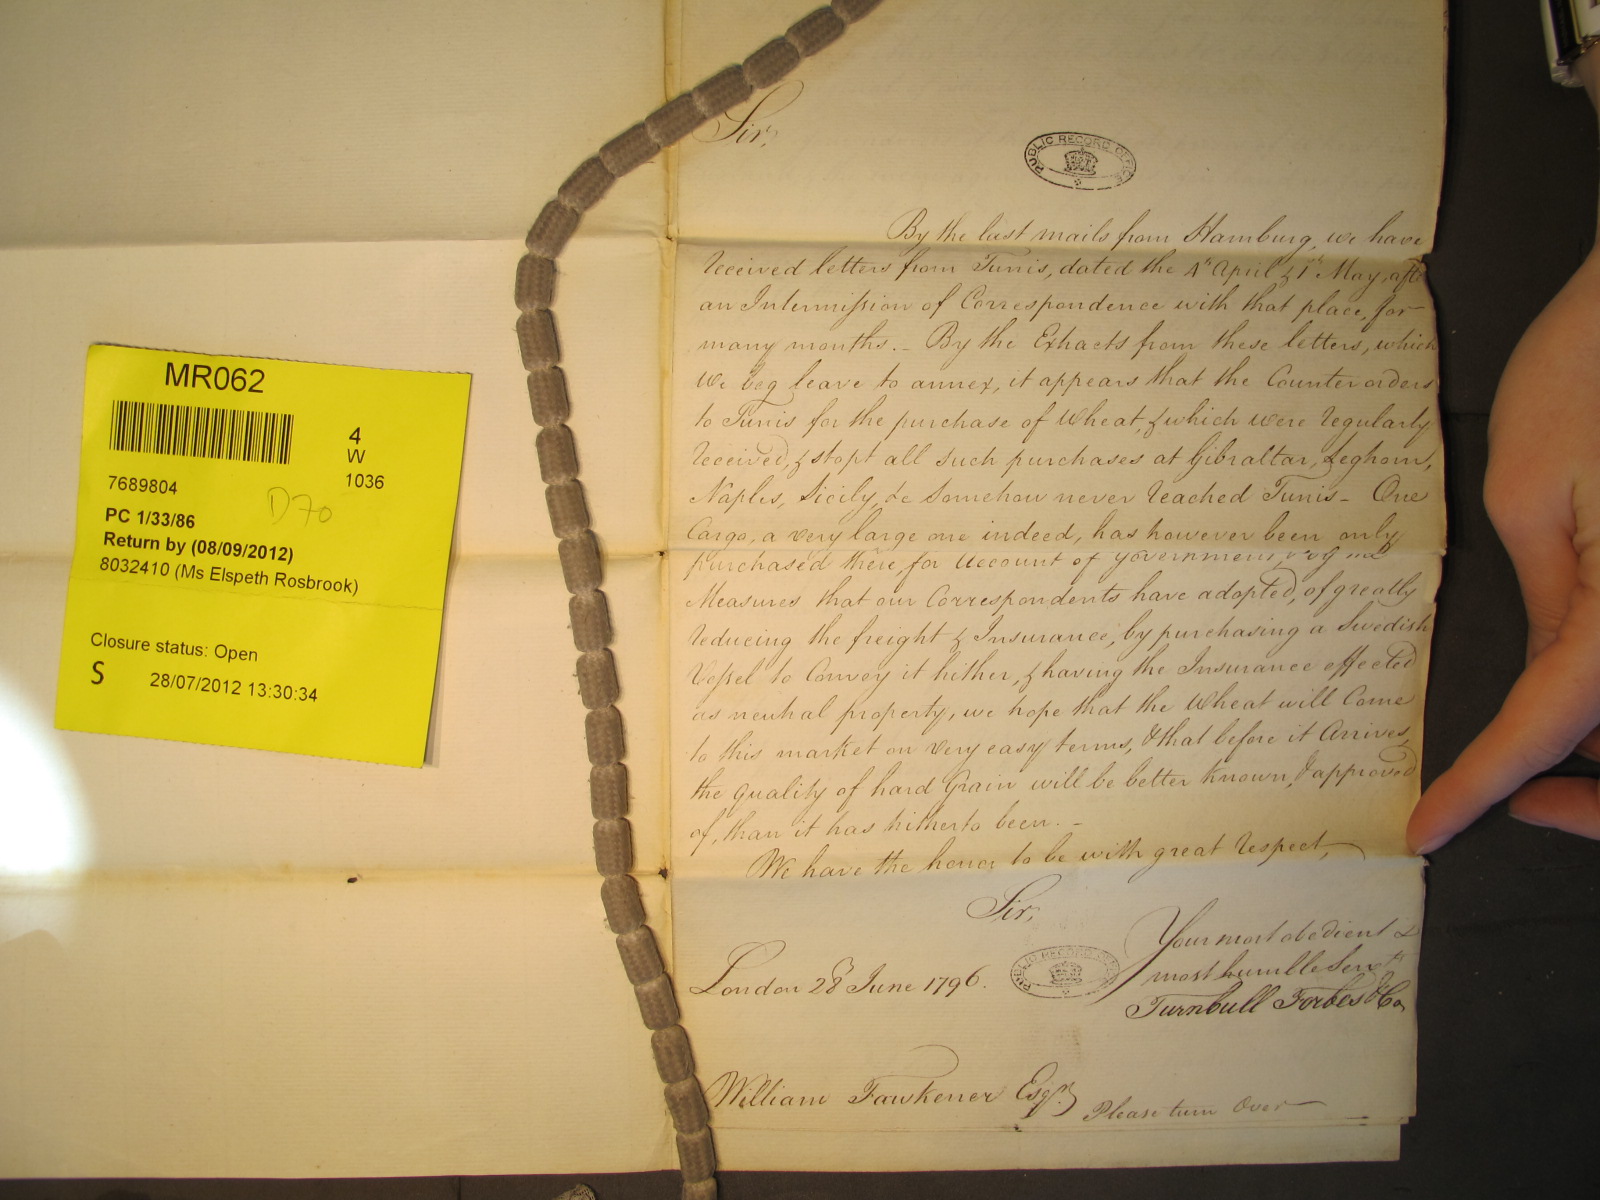 MR062
4
W
1036
7689804
D70
PC 1/33/86
Return by (08/09/2012)
8032410 (Ms Elspeth Rosbrook)
Closure status: Open
S 28/07/2012 13:30:34
Sir,
PUBLIC RECORD OFFICE
By the last mails from Hamburg, we have
received letters from Tunis, dated the 4th April & 1st May, after
an Intermission of Correspondence with that place, for
many months. - By the Extracts from these letters, which
we beg leave to annex, it appears that the Counter orders
to Tunis for the purchase of wheat, & which were regularly
received, & stopt all such purchases at Gibraltar, Leghorn,
Naples, Sicily, &c somehow never reached Tunis - One
Cargo, a very large one indeed, has however been only
purchased there, for account of Government,
Measures that our Correspondents have adopted, of greatly
reducing the freight & Insurance, by purchasing a Swedish
Vessel to Convey it hither, & having the Insurance effected
as neutral property, we hope that the wheat will Come
to this market on very easy terms, & that before it Arrives,
the quality of hard Grain will be better known, & approved
of, than it has hitherto been. -
We have the honor to be with great respect,
Sir,
Your most obedient &
most humble Servts
Turnbull Forbes & Co
London 28th June 1796.
PUBLIC RECORD OFFICE
William Fawkener Esqr.
Please turn Over